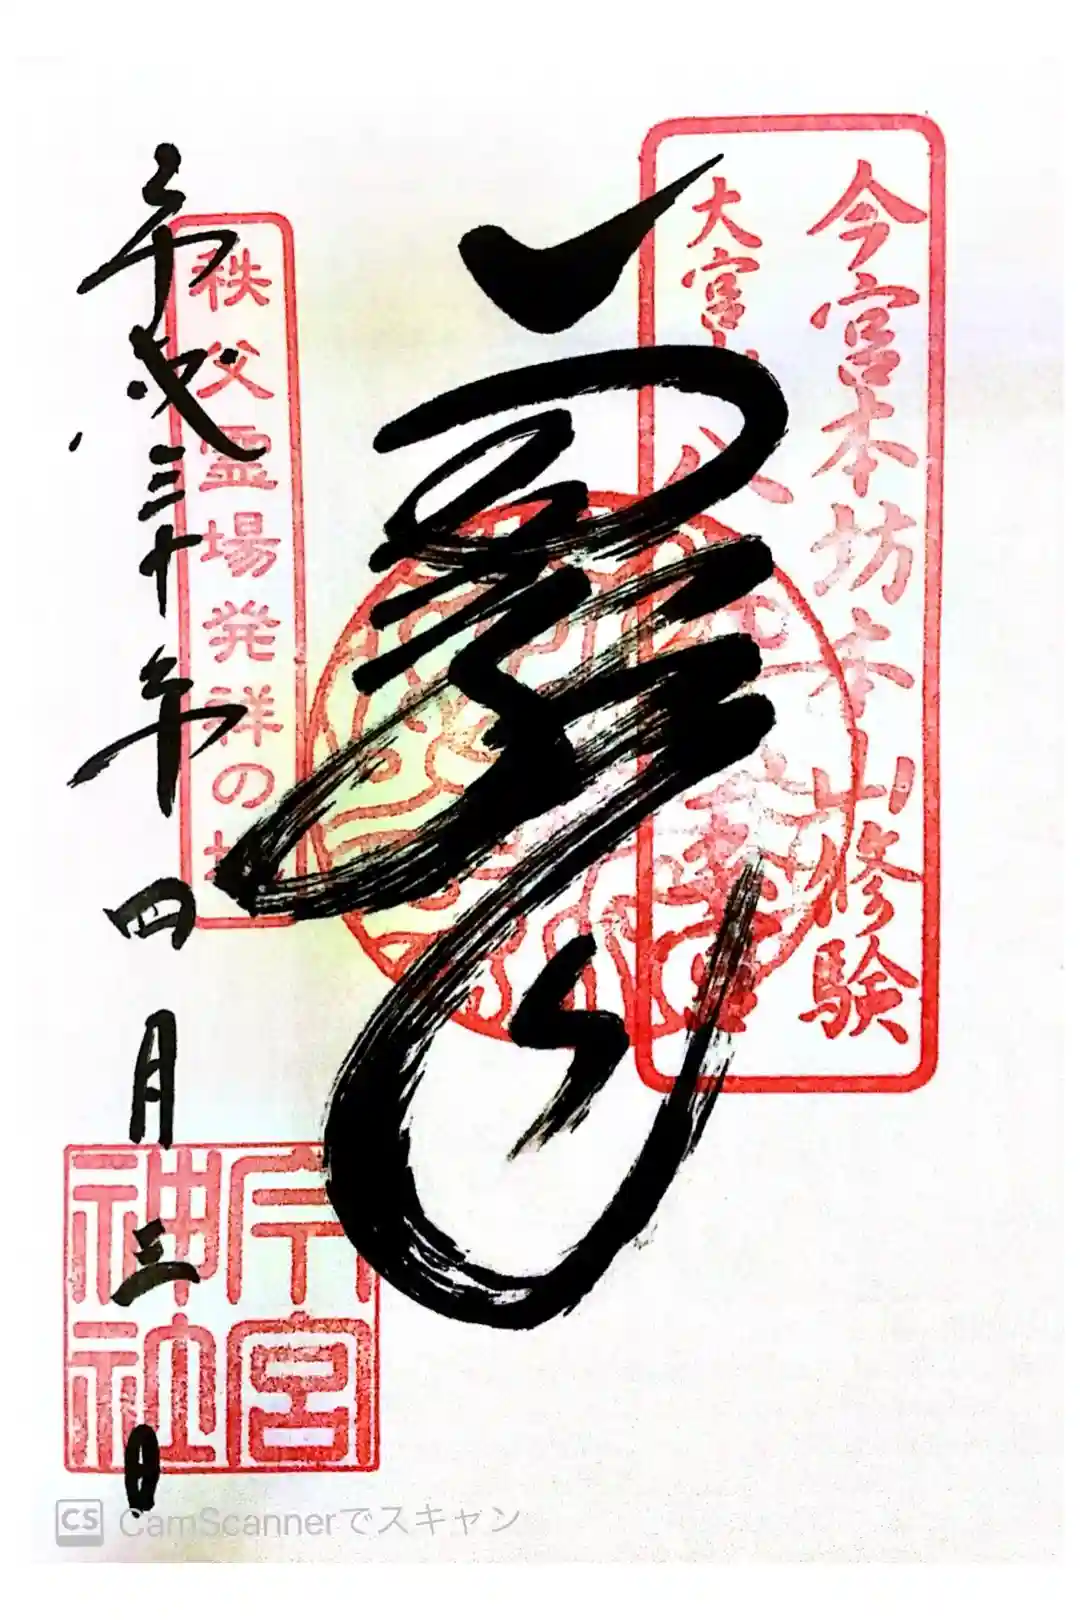 今宮本坊本山修験
大宮山
龍
秩父霊場発祥の地
平成三十年四月三日
今宮神社
CS CamScannerでスキャン